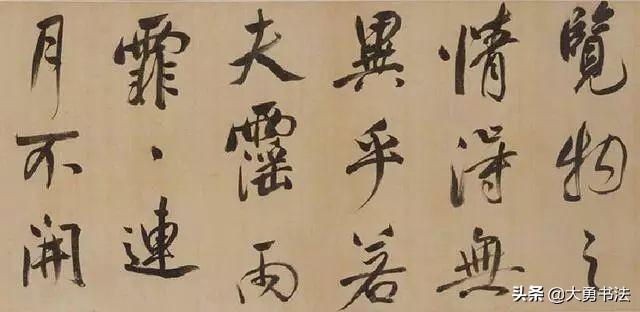 覽物之
情得無
異乎若
夫霪雨
霏〻連
月不開
头条 @大勇书法